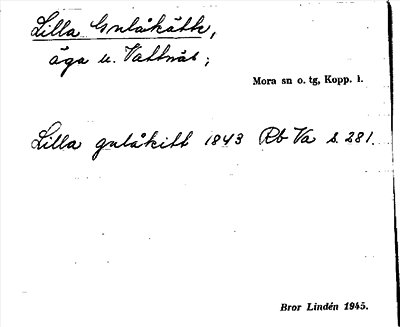 Lilla Gulåkätt,
äga u. Vattnäs;
Mora sn o. tg, Kopp. l.
Lilla gulåkitt 1843 Rb Va s. 281.
Bror Lindén 1945.